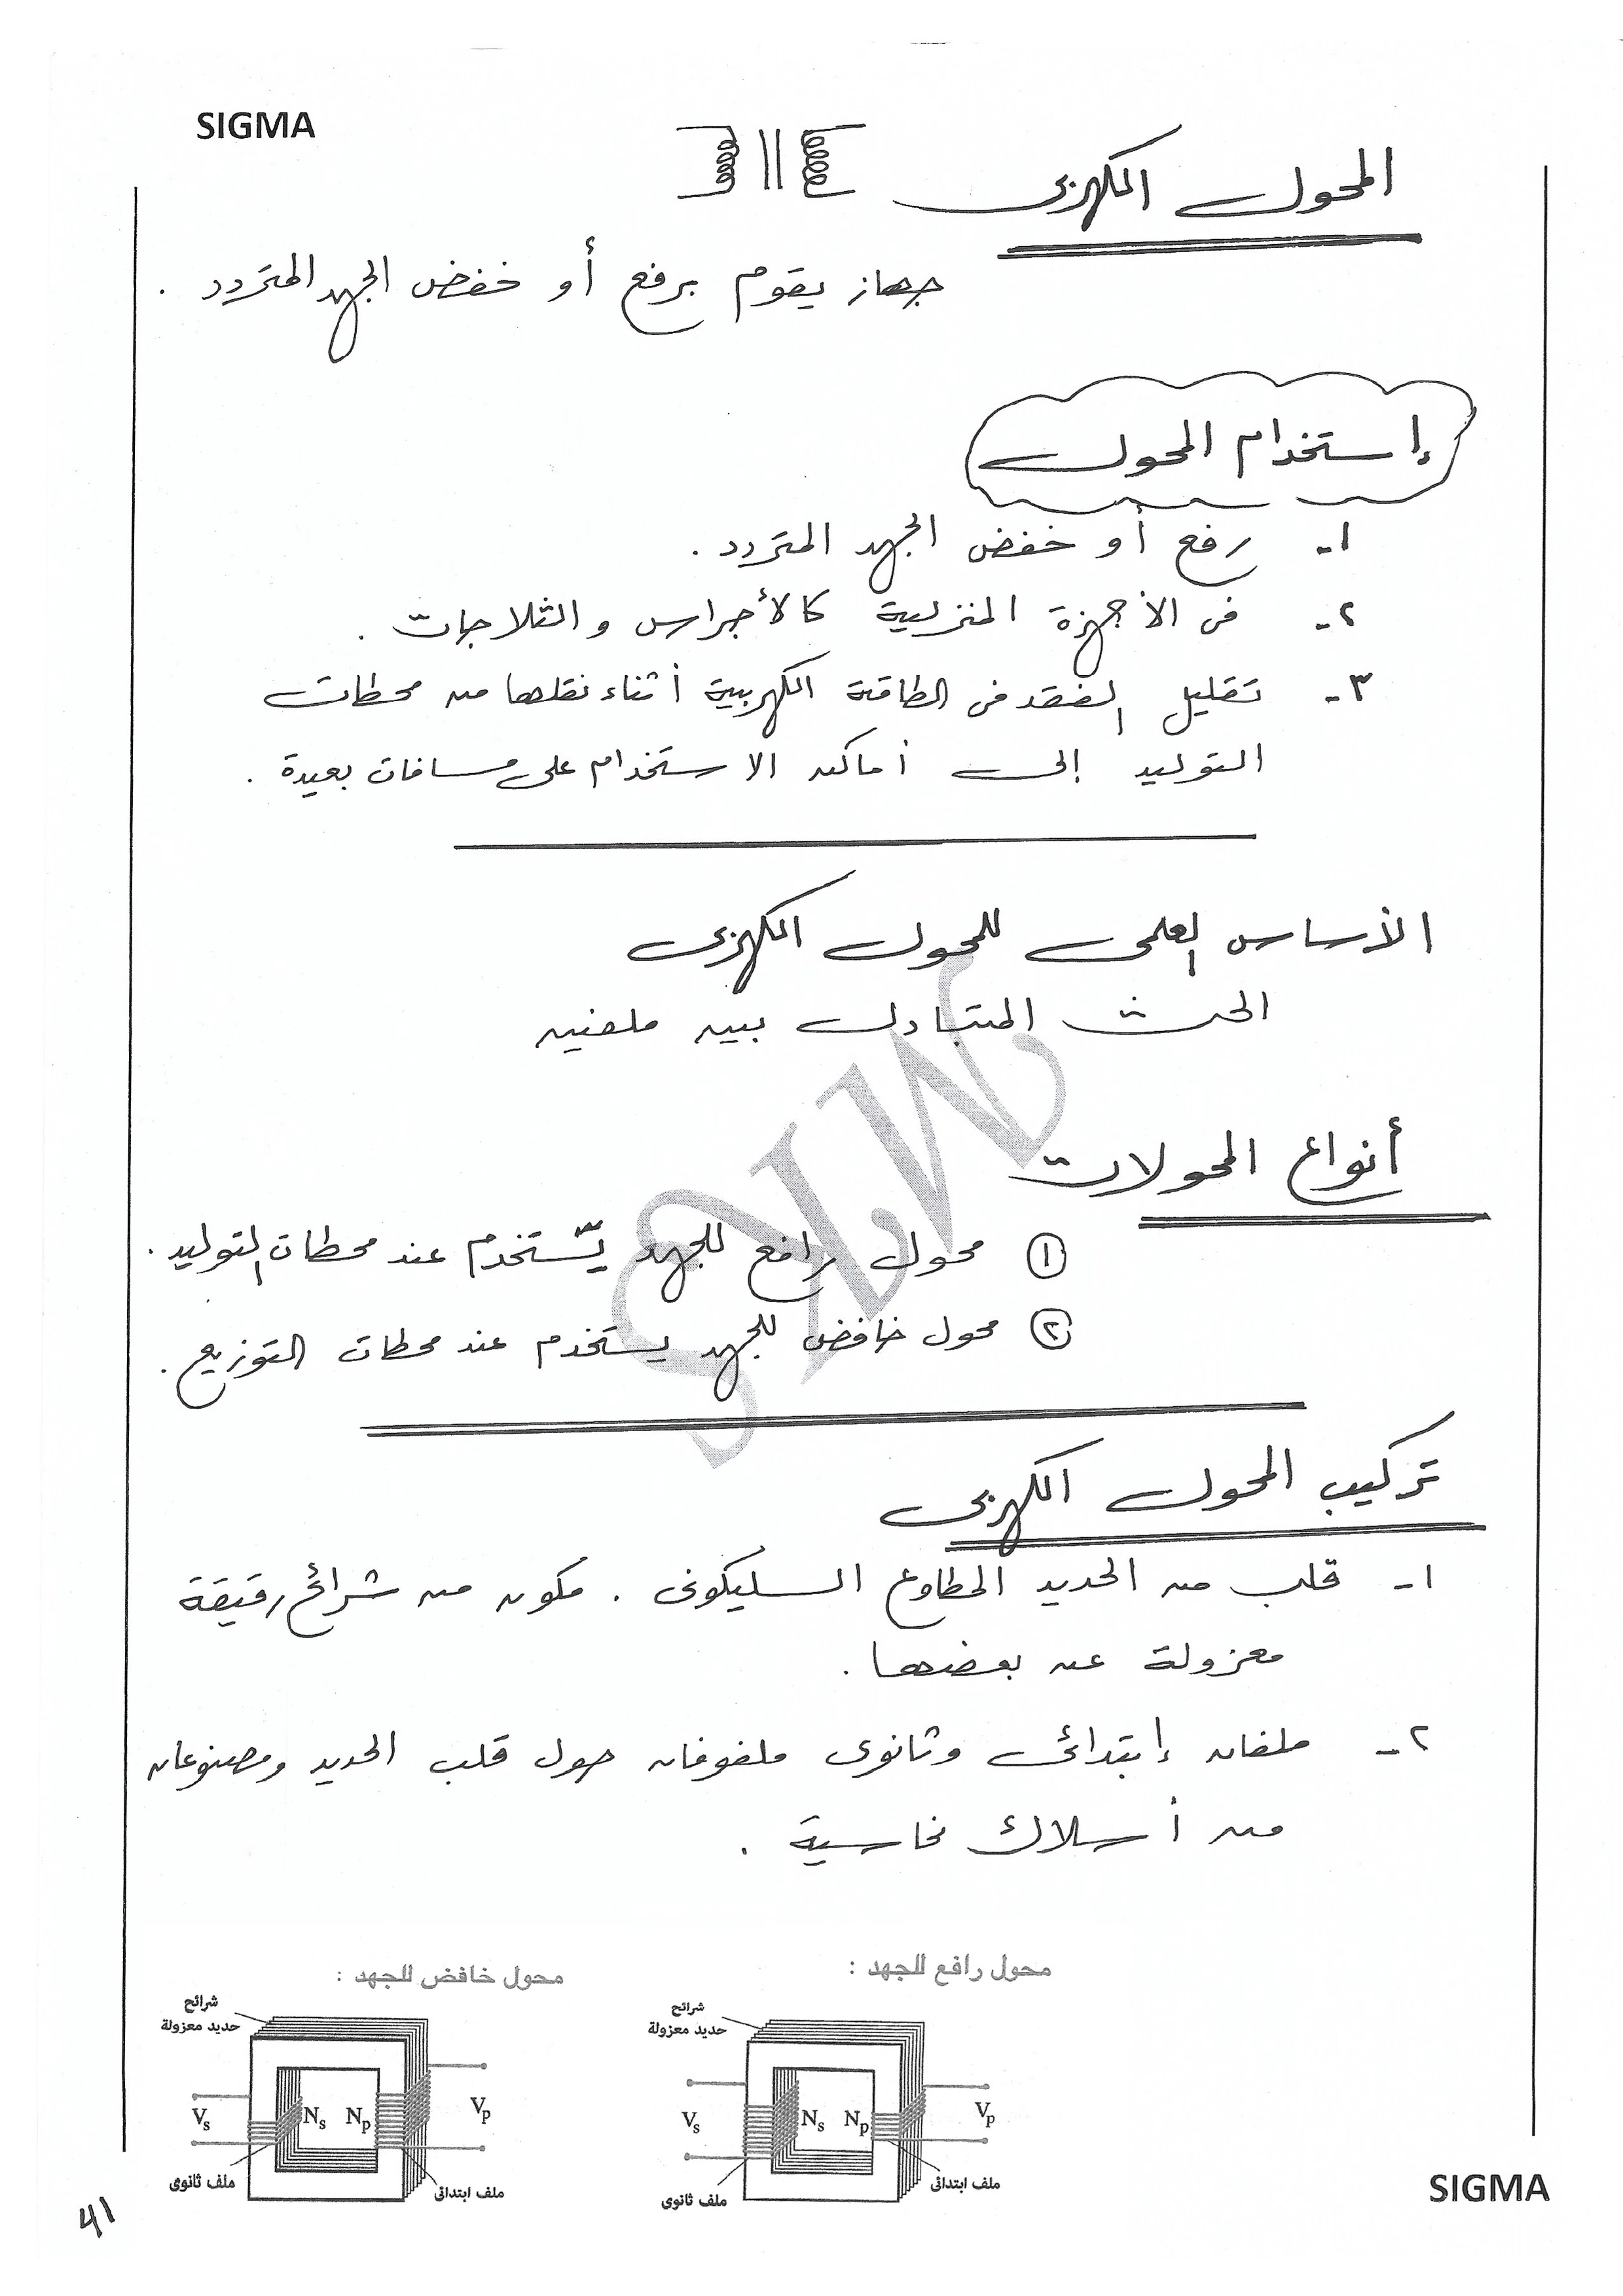 SIGMA
المحول الكهربى
جهاز يقوم برفع أو خفض الجهد المتردد .
إستخدام المحول
١- رفع أو خفض الجهد المتردد .
٢- فى الأجهزة المنزلية كالأجراس والثلاجات .
٣- تقليل الفقد فى الطاقة الكهربية أثناء نقلها من محطات
التوليد إلى أماكن الاستخدام على مسافات بعيدة .
الأساس العلمى للمحول الكهربى
الحث المتبادل بين ملفين
أنواع المحولات
① محول رافع للجهد يُستخدم عند محطات التوليد .
② محول خافض للجهد يستخدم عند محطات التوزيع .
تركيب المحول الكهربى
١- قلب من الحديد المطاوع السليكونى . مكون من شرائح رقيقة
معزولة عن بعضها .
٢- ملفان إبتدائى وثانوى ملفوفان حول قلب الحديد ومصنوعان
من أسلاك نحاسية .
محول رافع للجهد :
شرائح
حديد معزولة
Vs Ns Np Vp
ملف ابتدائى
ملف ثانوى
محول خافض للجهد :
شرائح
حديد معزولة
Vs Ns Np Vp
ملف ثانوى
ملف ابتدائى
SIGMA
41